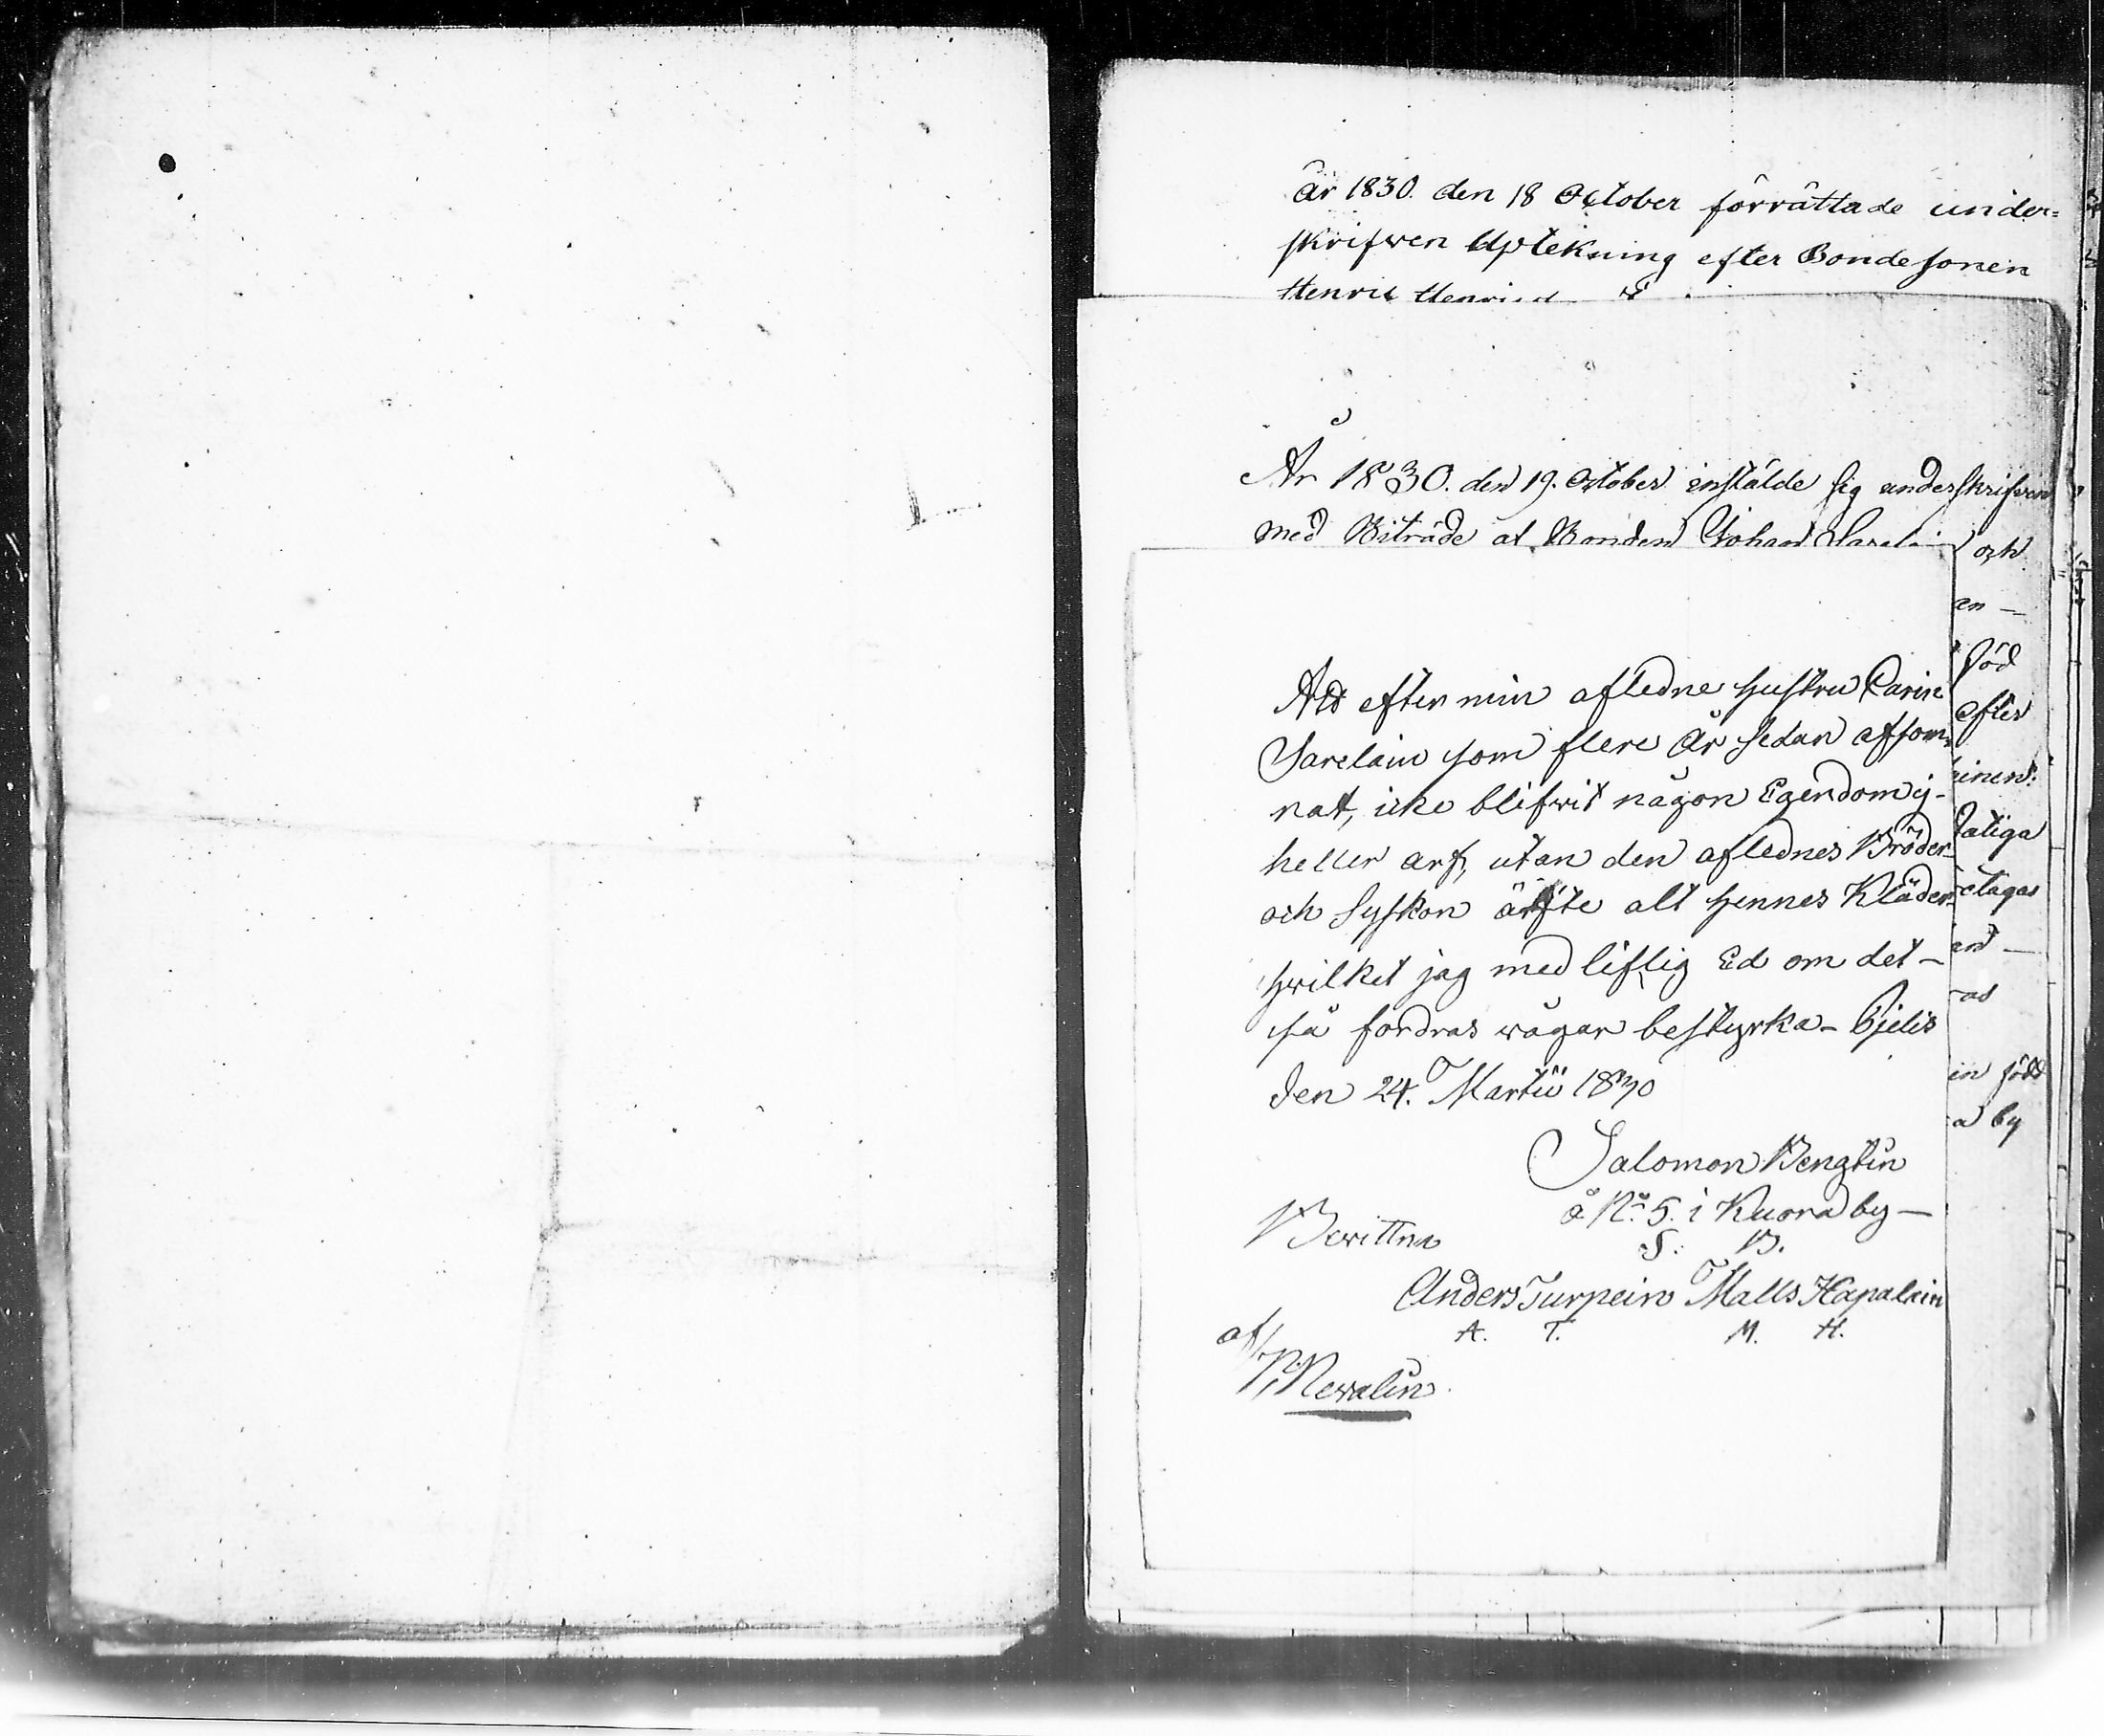 år 1830. den 18 October förrättade under=
skrifwen Uptekning efter Bondesonen
Henric
År 1830. den 19. October instälde sig underskrifven
med Biträde af Bonden Johan och
en —
föd
efter
inen
etagas
en —
as
in född
a by
Att efter min afledne hustru Carin
Sarelain som flere år sedan afsom-
nat, icke blifwit någon Egendom ej-
heller arf, utan den aflednes Bröder
och Syskon ärfte alt hennes Kläder
hwilket jag med liflig Ed om det-
så fordras wågar bestyrka - Gjelis
den 24. Martii 1830
Salomon Bengtin
å No: 5. i Kuona by —
S. B.
Bewittna
Anders Turpein Matts Hapalain
A. T. M. H.
af
P. Newalin